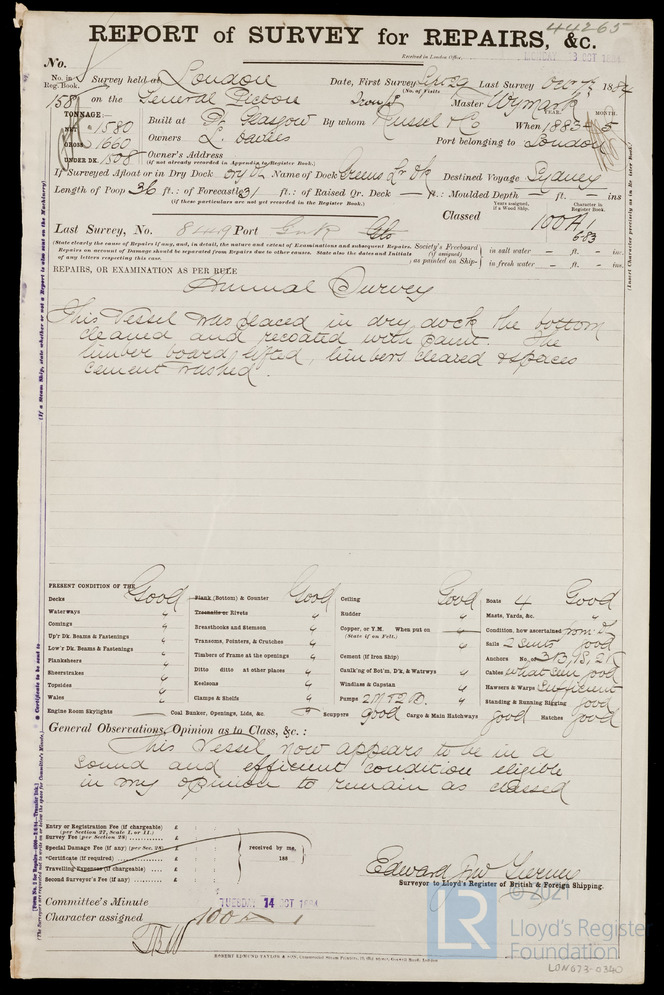 44265
REPORT of SURVEY for REPAIRS, &c.
Received in London Office, 13 OCT 1884
No.
No. in Reg. Book. Survey held at London Date, First Survey Last Survey Oct 7th 1884
(No. of Visits)
158 on the General Picton Iron Master Wymark YEAR. MONTH.
TONNAGE:—
NET 1580 Built at Pt Glasgow By whom Russel & Co When 1883 - 5
GROSS 1660 Owners L. Davies Port belonging to London
UNDER DK. 1508 Owner's Address
(if not already recorded in Appendix to Register Book.)
If Surveyed Afloat or in Dry Dock Dry Dk Name of Dock Greens Lr Dk Destined Voyage Sydney
Length of Poop 36 ft.: of Forecastle 31 ft.: of Raised Qr. Deck — ft.: Moulded Depth — ft. — ins
(if these particulars are not yet recorded in the Register Book.)
Years assigned, if a Wood Ship. Character in Register Book.
Classed 100A1
6-83
Last Survey, No. 8449 Port Grnk
(State clearly the cause of Repairs if any, and, in detail, the nature and extent of Examinations and subsequent Repairs.
Repairs on account of Damage should be separated from Repairs due to other causes. State also the dates and Initials
of any letters respecting this case.
Society's Freeboard (if assigned) as painted on Ship— in salt water — ft. — ins.
in fresh water — ft. — ins.
REPAIRS, OR EXAMINATION AS PER RULE
Annual Survey
This Vessel was placed in dry dock the bottom
cleaned and recoated with paint. The
limber boards lifted, limbers cleared & spaces
cement washed.
PRESENT CONDITION OF THE
Decks Good Plank (Bottom) & Counter Good Ceiling Good Boats 4 Good
Waterways " Treenails or Rivets " Rudder " Masts, Yards, &c. "
Comings " Breasthooks and Stemson " Copper, or Y.M. When put on — Condition, how ascertained from Dk
(State if on Felt.)
Up'r Dk. Beams & Fastenings " Transoms, Pointers, & Crutches " Sails 2 suits good
Low'r Dk. Beams & Fastenings " Timbers of Frame at the openings " Cement (if Iron Ship) " Anchors No. 3B, 1S, 2K
Planksheers " Ditto ditto at other places " Caulk'ng of Bot'm, D'k, & Watrwys " Cables what seen good
Sheerstrakes " Keelsons " Windlass & Capstan " Hawsers & Warps Sufficient
Topsides " Clamps & Shelfs " Pumps 2M & 2D. Standing & Running Rigging good
Wales "
Engine Room Skylights — Coal Bunker, Openings, Lids, &c. — Scuppers Good Cargo & Main Hatchways good Hatches Good
General Observations, Opinion as to Class, &c.:
This Vessel now appears to be in a
sound and efficient condition eligible
in my opinion to remain as classed
Entry or Registration Fee (if chargeable) £
(per Section 27, Scale 1, or 11.)
Survey Fee (per Section 28) £
Special Damage Fee (if any) (per Sec. 28) £ received by me,
*Certificate (if required) £ 188
Travelling Expenses (if chargeable) £
Second Surveyor's Fee (if any) £
Edward Jno
Surveyor to Lloyd's Register of British & Foreign Shipping.
Committee's Minute TUESDAY 14 OCT 1884
Character assigned 100A 1
ROBERT EDMUND TAYLOR & SON
(Insert Character precisely as in Register Book.)
(If a Steam Ship, state whether or not a Report is also sent on the Machinery)
* Certificate to be sent to
© 2021
LR
Lloyd's Register
Foundation
LON673-0340